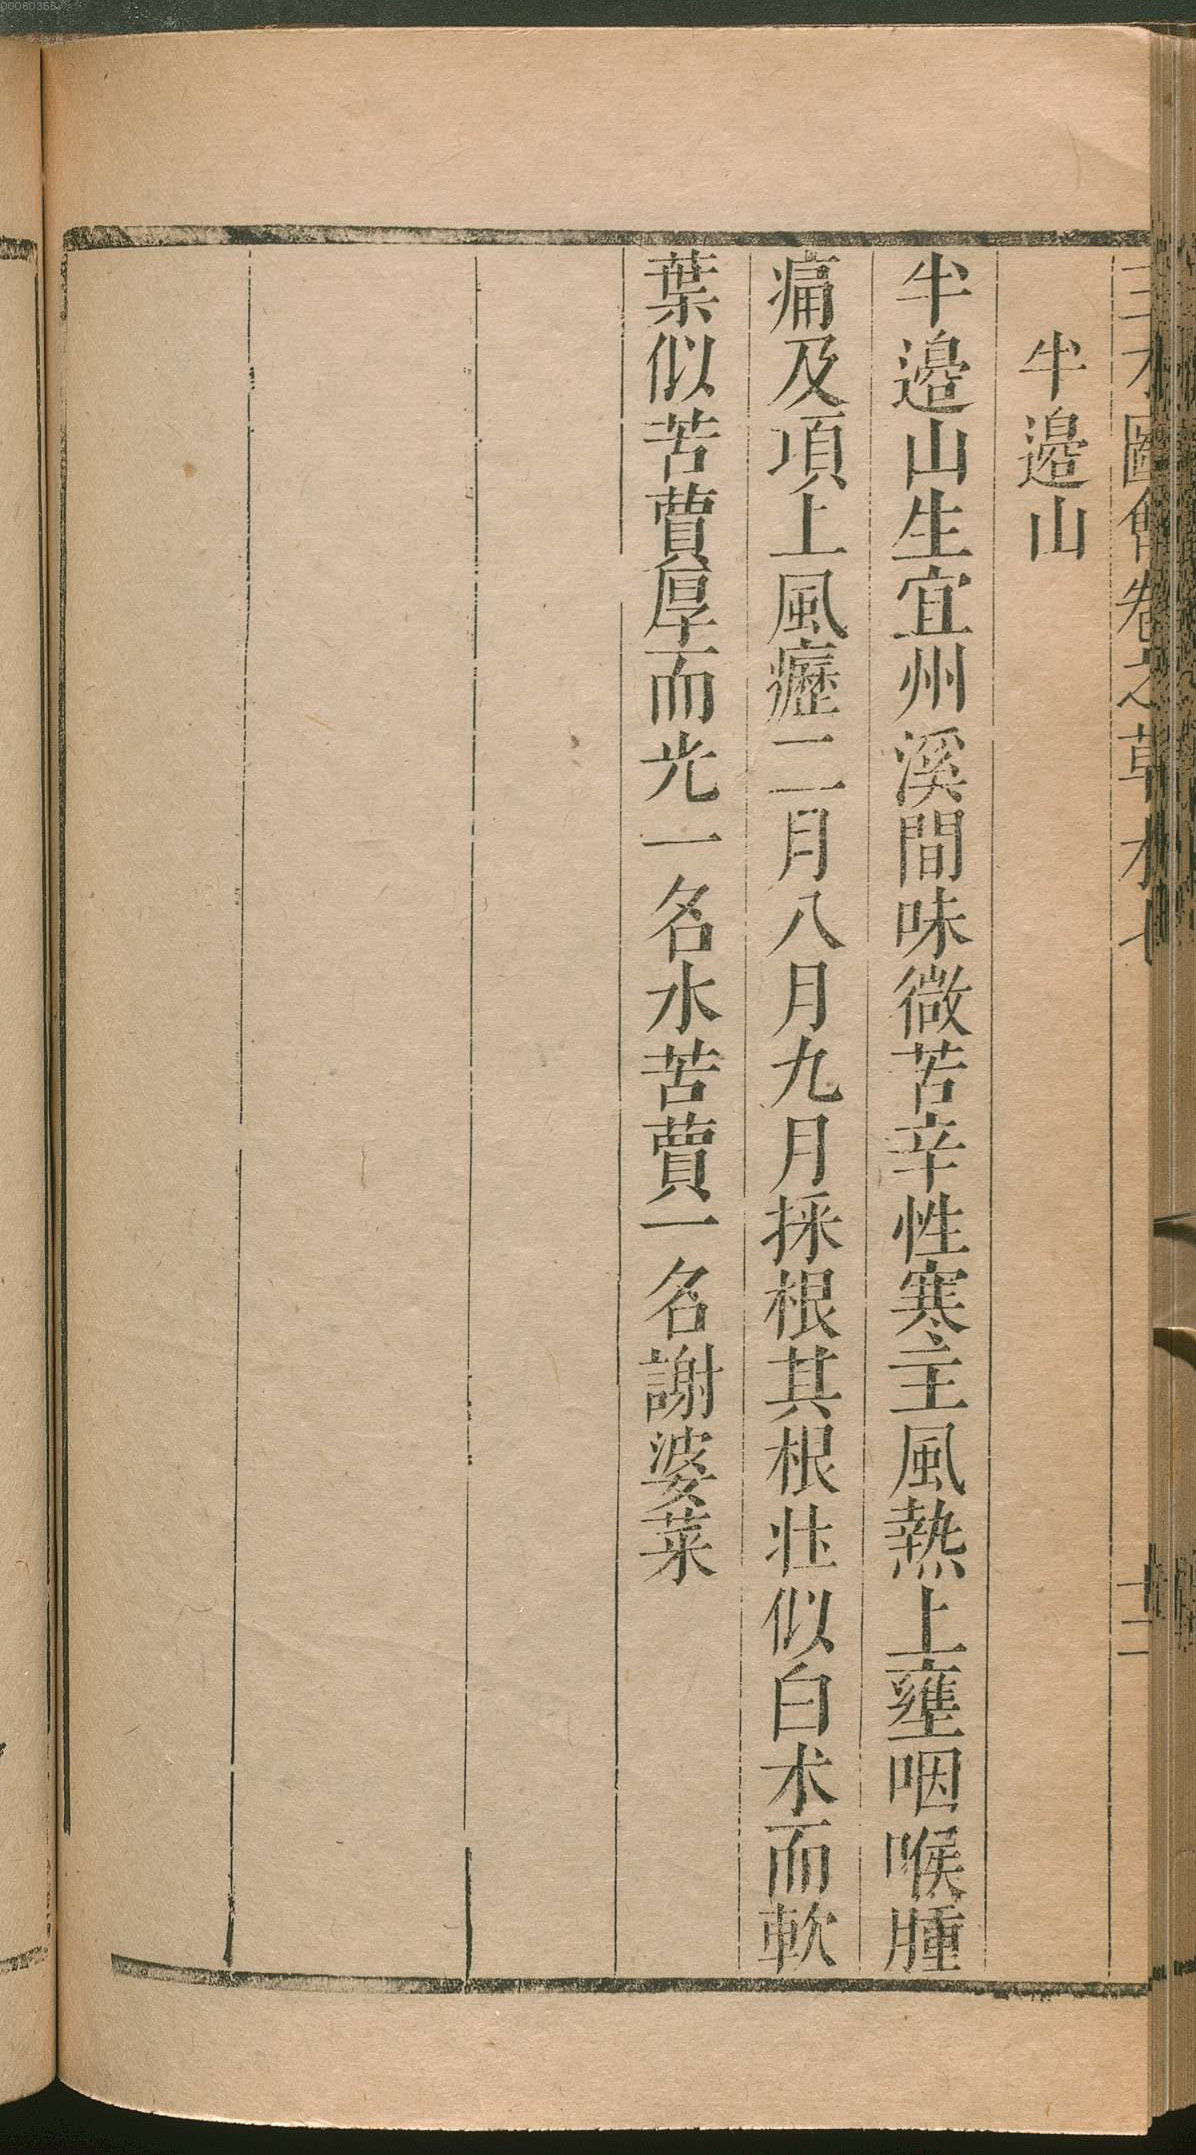 00060355
三才圖會卷之草木七 十二
半邉山
半邉山生宜州溪間味微苦辛性寒主風熱上壅咽喉腫
痛及項上風癧二月八月九月採根其根壮似白术而軟
葉似苦蕒厚而光一名水苦蕒一名謝婆菜